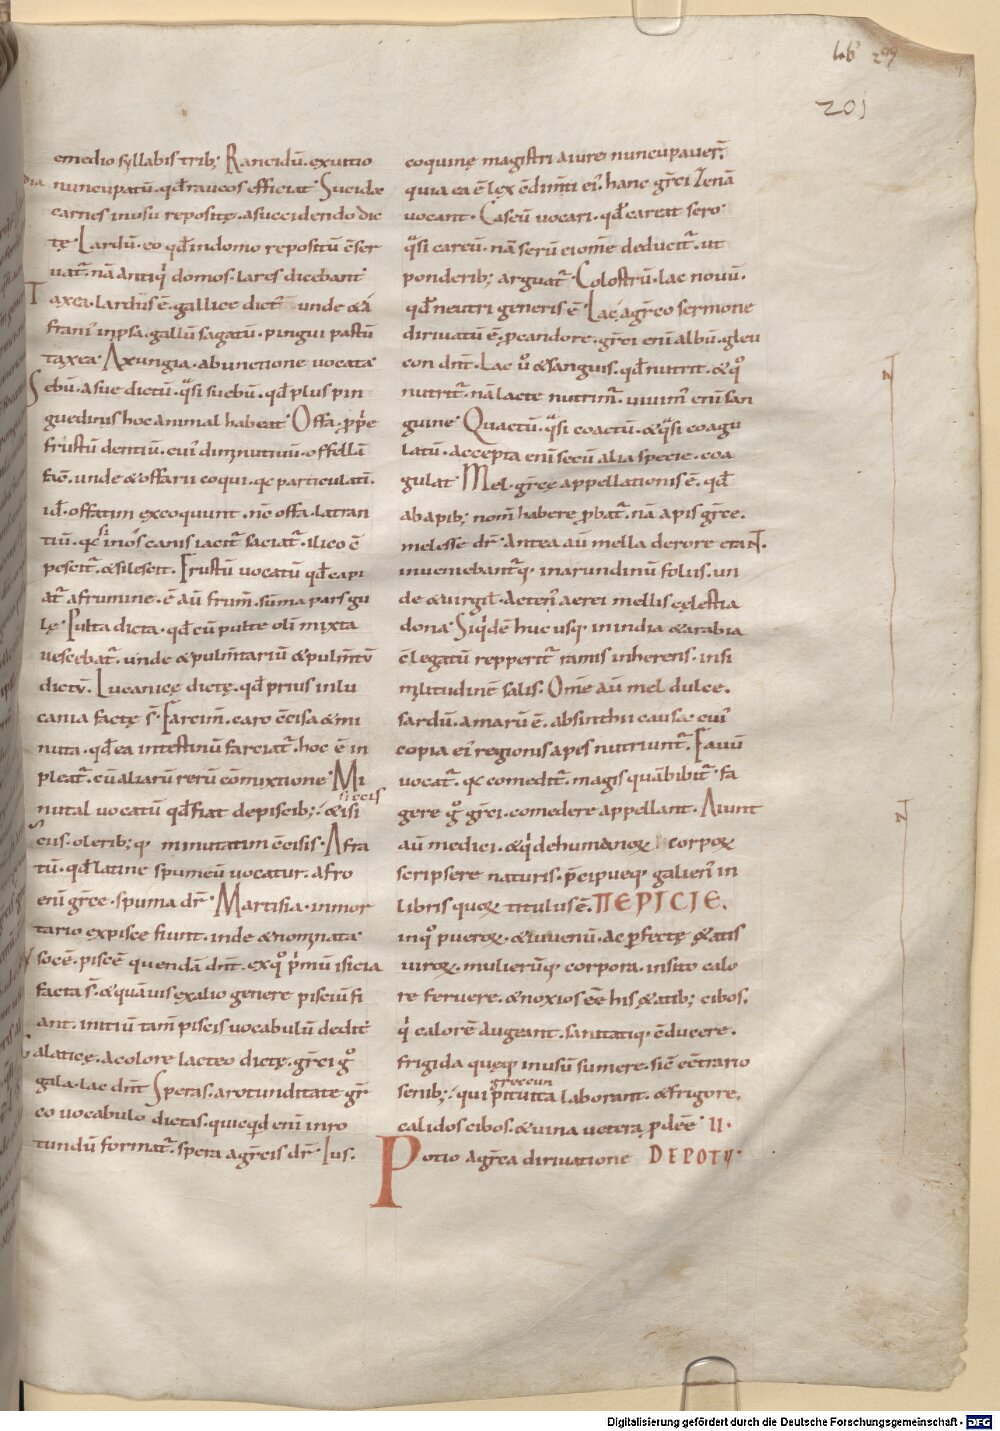 lib 209
201
emedio syllabis trib; Rancidū. ex uitio
dia
nuncupatū. qd̄ raucos efficiat. Sucidæ
carnes in usu repositę. a succidendo dic
tę. Lardū. eo qd̄ in domo repositū ēser
uat̄. nā antiqi domos. lares dicebant.
Taxea. lardus ē. gallice dict᷒ unde & a
frani᷒ in rosa. gallū sagatū. pingui pastū
taxea. Axungia. ab unctione vocata.
Sebū. a sue dictū. q̄si suebū. qd̄ plus pin
guedinis hoc animal habeat. Offa. p̱pe
frustū dentiū. cui᷒ diminutiuū. offellā
fac̄. unde & offarii coqui. qc particulatī.
id̄. offatim excoquunt. nē offa. latran
tiū. qc si in os canis iacit᷒. saciat᷒. ilico ē
pescit᷒. & silescit. Frustū uocatū qd̄ capi
at᷒ a frumine. ē aū frum̄. sūma pars gu
lę. Pulta dicta. qd̄ cū pulte oli mixta
uescebat᷒. unde & pulm̄tariū & pulm̄tū
dictū. Lucanicę dictę. qd̄ prius in lu
cania factę s̄. Farcim̄. caro c̄cisa & mi
nuta. qd̄ ea intestinū farciat᷒. hoc ē in
pleat᷒. cū aliarū rerū cōmixtione. Mi
nutal uocatū qd̄ fiat de piscib; & isi
siccis
cus. olerib; q minutatim c̄cisis. Afra
tū. qd̄ latine spumeū uocatur. afro
eni grēce. spuma dr̄. Martisia. in mor
tario ex pisce fiunt. inde & nominata.
Isocē. piscē quendā dn̄t. ex qo pimū isicia
facta s̄. & quāuis ex alio genere pisciū fi
ant. initiū tam̄ piscis uocabulū dedit.
Galaticę. a colore lacteo dictę. grēci go
gala. lac dn̄t. Speras. a rotunditate gr̄
co uocabulo dictas. quicqd eni in ro
tundū format᷒. spera a grēcis dr̄. Ius.
coquinę magistri a iure nuncupauer̄.
quia ea ē lex c̄dim̄ti ei᷒. hanc grēci zenā
uocant. Caseū uocari. qd̄ careat sero.
q̄si careū. nā serū ei om̄e deducit᷒. ut
ponderib; arguat᷒. Colostrū. lac nouū.
qd̄ neutri generis ē. Lac, a grēco sermone
diriuatū ē. p candore. grēci eni albū. gleu
con dn̄t. Lac uo & sanguis. qd̄ nutrit. & qo
nutrit᷒. nā lacte nutrim᷒. uiuim᷒ eni san
guine. Quactū. q̄si coactū. & q̄si coagu
latū. accepta eni secū alia specie. coa
gulat. Mel. grēcę appellationis ē. qd̄
ab apib; nom̄ habere pbat᷒. nā apis grēce.
melesse dr̄. Antea aū mella de rore erāt.
inueniebant᷒q. in arundinū foliis. un
de & uirgil᷒. Acten᷒ aerei mellis cęlestia
dona. Siqidē huc usq. in india & arabia
c̄legatū repperit᷒ ramis inherens. in si
militudinē salis. Om̄e aū mel dulce.
sardū. amarū ē. absinthii causa. cui᷒
copia ei᷒ regionis apes nutriunt᷒. Fauū
uocat᷒. qc comedit᷒. magis quā bibit᷒. fa
gere go grēci. comedere appellant. Aiunt
aū medici. & qi de humanoꝝ corpoꝝ
scripsere naturis. p̄cipueq. galien᷒ in
libris quoꝝ titulus ē. ΠEPICIE.
in qo pueroꝝ. & iuuenū. ac pfectę ætatis
uiroꝝ. mulierūq. corpora. insito calo
re feruere. & noxios ēe his ætatib; cibos.
qi calorē augeant. sanitatiq. c̄ducere.
frigida queq. in usū sumere. sic̄ ec̄trario
senib; qui pituita laborant. & frigore.
grecum
calidos cibos. & uina uetera pdēe. II.
Potio a grēca diriuatione DE POTU.
Digitalisierung gefördert durch die Deutsche Forschungsgemeinschaft - DFG